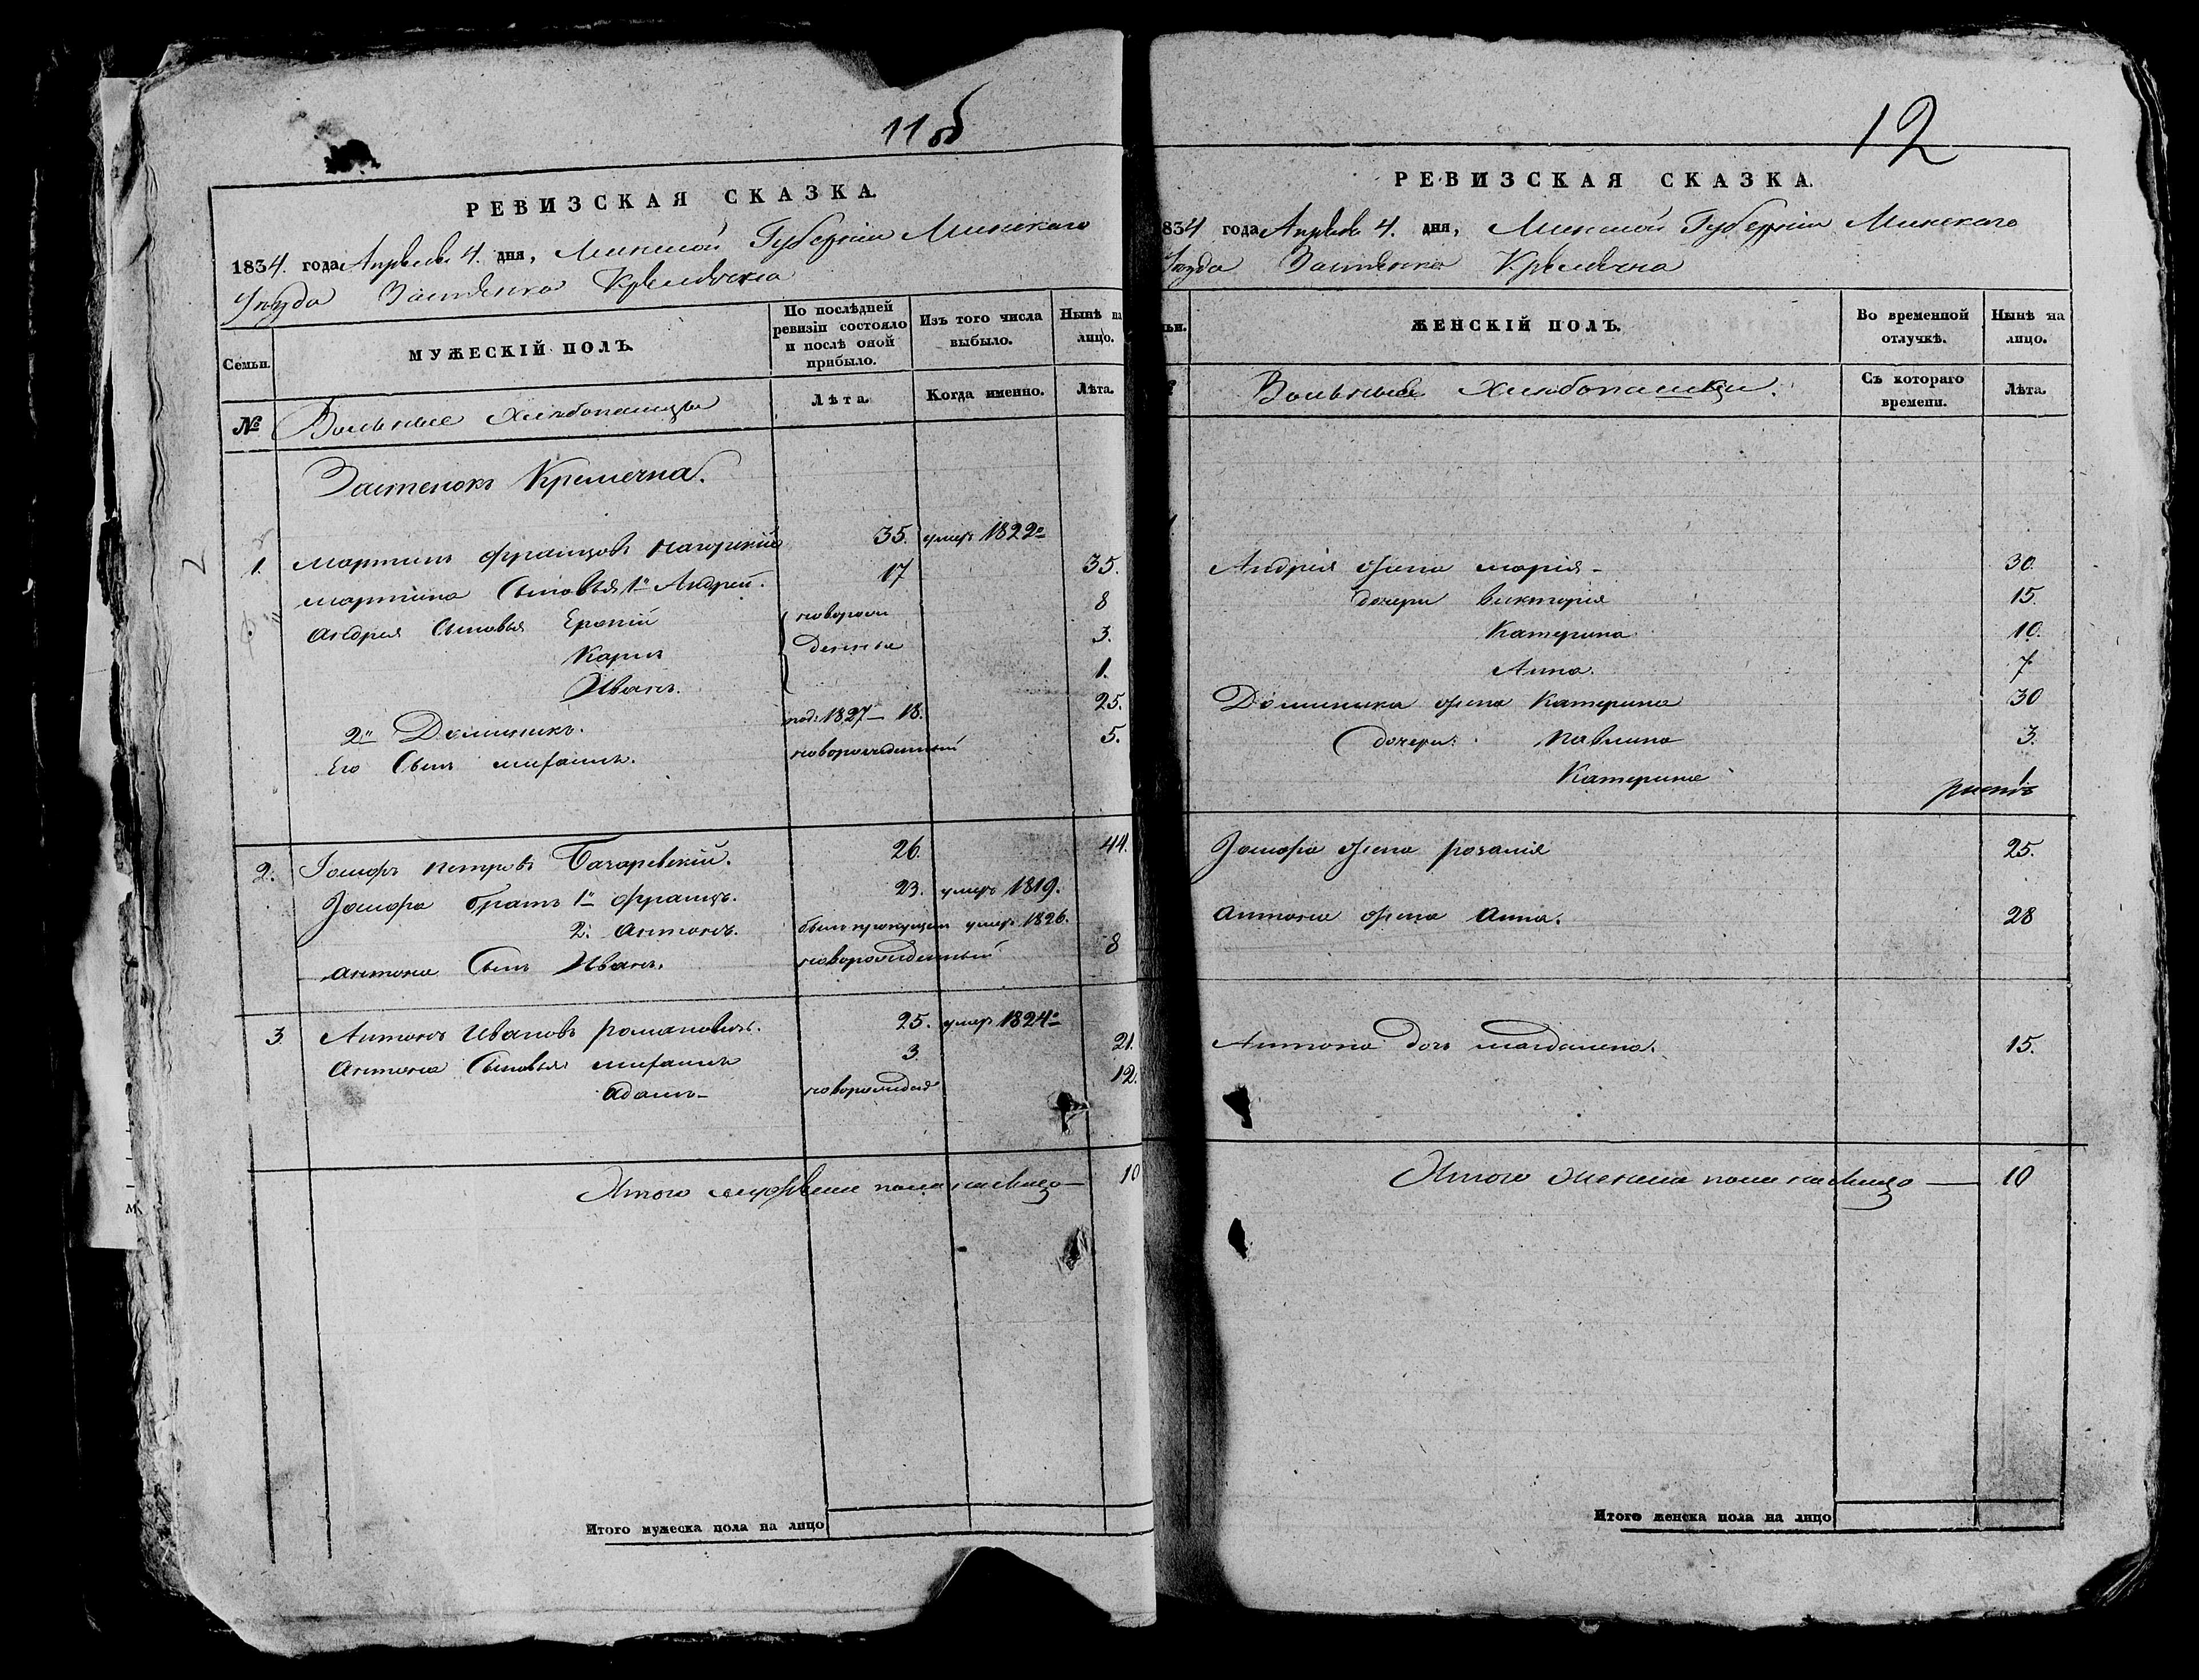 11 об
РЕВИЗСКАЯ СКАЗКА.
1834. года Апреля 4. дня, Минской Губерніи Минскаго
Уезда Застенка Кремечна
Семьи.
МУЖЕСКІЙ ПОЛЪ.
По послѣдней ревизіи состояло и послѣ оной прибыло.
Изъ того числа выбыло.
Нынѣ на лицо.
№
Вольные Хлебопашцы
Лѣта.
Когда именно.
Лѣта.
Застенокъ Кремечна.
1. Мартинъ Францовъ Нагорскій 35. умеръ 1822го
Мартина Сыновья 1й Андрей. 17 35.
Андрея Сыновья новорож 8
Карлъ денные 3.
Иванъ. 1.
2й Доминикъ. 1827 — 18. 25.
Его Сынъ Михаилъ. новорожденный 5.
2. Іосифъ Петровъ 26. 44.
Іосифа братъ 1й Францъ. 23. умеръ 1819.
2. Антонъ. былъ пропущенъ умеръ 1826.
Антона Сынъ Иванъ. новорожденный 8
3. Антонъ Ивановъ Романовичъ. 25. умеръ 1824го
Антона Сыновья Михаилъ 3. 21.
Адамъ новорожден 12.
Итого мужеска пола налицо — 10
Итого мужеска пола на лицо
12
РЕВИЗСКАЯ СКАЗКА.
834 года Апреля 4. дня, Минской Губерніи Минскаго
Уезда Застенка Кремечна
ьи.
ЖЕНСКІЙ ПОЛЪ.
Во временной отлучкѣ.
Нынѣ на лицо.
Вольные Хлебопашки.
Съ котораго времени.
Лѣта.
Андрея жена Марія — 30.
дочери Викторія 15.
Катерина 10.
Анна. 7
Доминика жена Катерина 30
дочери: Павлина 3.
Катерина 1
Іосифа жена Розалія 25.
Антона жена Анна. 28
Антона дочь Магдалена. 15.
Итого женска пола налицо — 10
Итого женска пола на лицо